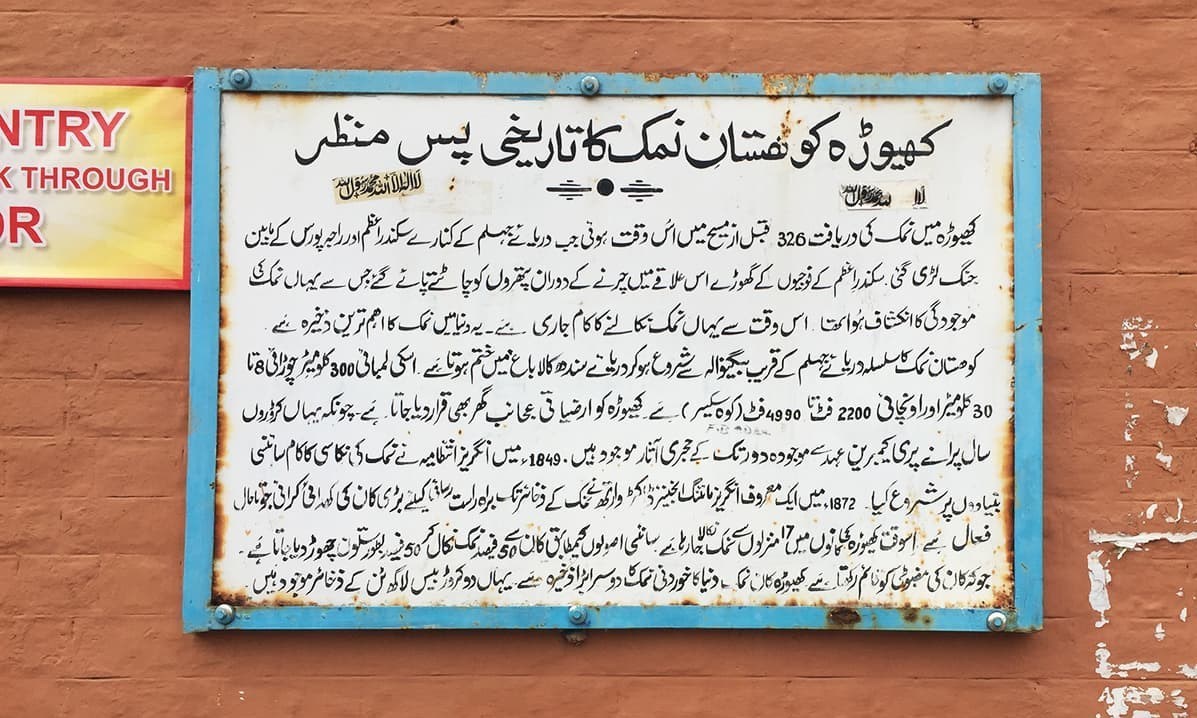 NTRY
K THROUGH
OR
کھیوڑہ کوہستان نمک کا تاریخی پس منظر
لا اله الا الله محمد رسول الله
لا الله محمد رسول الله
کھیوڑہ میں نمک کی دریافت 326 قبل از مسیح میں اس وقت ہوئی جب دریائے جہلم کے کنارے سکندر اعظم اور راجہ پورس کے مابین
جنگ لڑی گئی۔ سکندر اعظم کے فوجیوں کے گھوڑے اس علاقے میں چرنے کے دوران پتھروں کو چاٹتے پائے گئے جس سے یہاں نمک کی
موجودگی کا انکشاف ہوا تھا۔ اس وقت سے یہاں نمک نکالنے کا کام جاری ہے۔ یہ دنیا میں نمک کا اہم ترین ذخیرہ ہے
کوھستان نمک کا سلسلہ دریائے جہلم کے قریب بیگنوالہ سے شروع ہو کر دریائے سندھ کالا باغ میں ختم ہوتا ہے۔ اسکی لمبائی 300 کلومیٹر چوڑائی 8 تا
30 کلومیٹر اور اونچائی 2200 فٹ تا 4990 فٹ (کوہ سکیسر) ہے۔ کھیوڑہ کو ارضیاتی عجائب گھر بھی قرار دیا جاتا ہے۔ چونکہ یہاں کروڑوں
سال پرانے پری کیمبرین عہد سے موجودہ دور تک کے حجری آثار موجود ہیں۔ 1849ء میں انگریز انتظامیہ نے نمک کی نکاسی کا کام سائنسی
بنیادوں پر شروع کیا۔ 1872ء میں ایک معروف انگریز مائننگ انجینئر ڈاکٹر وارتھ نے نمک کے ذخائر تک براہ راست رسائی کیلئے بڑی کان کی کھدائی کرائی جو تاحال
فعال ہے۔ اسوقت کھیوڑہ کی کانوں میں 17 منزلوں سے نمک نکالا جا رہا ہے سائنسی اصولوں کے مطابق کان سے 50 فیصد نمک نکال کر 50 فیصد بطور ستون چھوڑ دیا جاتا ہے۔
جو کہ کان کی مضبوطی کو قائم رکھتا ہے کھیوڑہ کان نمک دنیا کا خوردنی نمک کا دوسرا بڑا ذخیرہ ہے۔ یہاں دو کروڑ بیس لاکھ ٹن کے ذخائر موجود ہیں۔